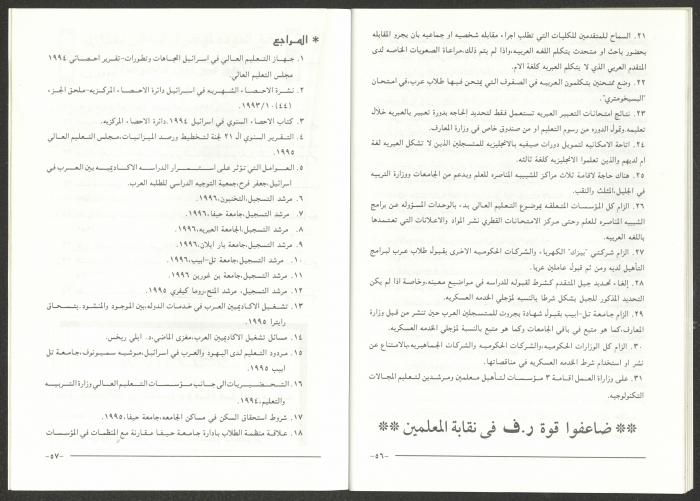 ٢١. السماح للمتقدمين للكليات التي تطلب اجراء مقابله شخصيه او جماعيه بان يجرو المقابله
بحضور باحث او متحدث يتكلم اللغه العربيه،واذا لم يتم ذلك،مراعاة الصعوبات الخاصه لدى
المتقدم العربي الذي لا يتكلم العبريه كلغة الام.
٢٢. وضع ممتحنين يتكلمون العربيه في الصفوف التي يمتحن فيها طلاب عرب،في امتحان
"البسيخومتري".
٢٣. نتائج امتحانات التعبير العبريه تستعمل فقط لتحديد الحاجه بدورة تعبير بالعبريه خلال
تعليمه،وتمول الدوره من رسوم التعليم او من صندوق خاص في وزارة المعارف.
٢٤. اتاحة الامكانيه لتمويل دورات صيفيه بالانجليزيه للمتسجلين الذين لا تشكل العبريه لغة
ام لديهم والذين تعلموا الانجليزيه كلغة ثالثه.
٢٥. هناك حاجة لاقامة ثلاث مراكز للشبيبه المناصره للعلم وبدعم من الجامعات ووزارة التربيه
في الجليل،المثلث والنقب.
٢٦. الزام كل المؤسسات المتعلقه بموضوع التعليم العالي بدء بالوحدات المسؤوله عن برامج
الشبيبه المناصره للعلم وحتى مركز الامتحانات القطري نشر المواد والاعلانات التي تعتمدها
باللغه العربيه.
٢٧. الزام شركتي "بيزك" الكهرباء والشركات الحكوميه الاخرى بقبول طلاب عرب لبرامج
التأهيل لديه ومن ثم قبول عاملين عربا.
٢٨. إلغاء تحديد جيل المتقدم كشرط لقبوله للدراسه في مواضيع معينه،وخاصة اذا لم يكن
التحديد المذكور للجيل يشكل شرطا بالنسبه لمؤجلي الخدمه العسكريه.
٢٩. الزام جامعة تل-ابيب بقبول شهادة بجروت للمتسجلين العرب حين تنشر من قبل وزارة
المعارف،كما هو متبع في باقي الجامعات وكما هو متبع بالنسبة لمؤجلي الخدمه العسكريه.
٣٠. الزام كل الوزارات الحكوميه،والشركات الحكوميه والشركات الجماهيريه،بالامتناع عن
نشر او استخدام شرط الخدمه العسكريه في مناقصاتها.
٣١. على وزارة العمل اقامة ٣ مؤسسات لتأهيل معلمين ومرشدين لتعليم المجالات
التكنولوجيه.
** ضاعفوا قوة ر.ف في نقابة المعلمين **
-٥٦-
* المراجع
١. جهاز التعليم العالي في اسرائيل اتجاهات وتطورات-تقرير احصائي ١٩٩٤
مجلس التعليم العالي.
٢. نشرة الاحصاء الشهريه في اسرائيل دائرة الاحصاء المركزيه-ملحق الجزء
(٤٤) ١٩٩٣/١٠.
٣. كتاب الاحصاء السنوي في اسرائيل ١٩٩٤،دائرة الاحصاء المركزيه.
٤. التقرير السنوي ال ٢١ لجنة لتخطيط ورصد الميزانيات،مجلس التعليم العالي
١٩٩٥.
٥. العوامل التي تؤثر على استمرار الدراسه الاكاديميه بين العرب في
اسرائيل،جعفر فرح،جمعية التوجيه الدراسي للطلبه العرب.
٦. مرشد التسجيل،التخنيون،١٩٩٦.
٧. مرشد التسجيل،جامعة حيفا،١٩٩٦.
٨. مرشد التسجيل،الجامعة العبريه،١٩٩٦.
٩. مرشد التسجيل،جامعة بار ايلان،١٩٩٦.
١٠. مرشد التسجيل،جامعة تل-ابيب،١٩٩٦.
١١. مرشد التسجيل،جامعة بن غورين ١٩٩٦.
١٢. مرشد التسجيل، مرشد المنح،روما كيفري ١٩٩٥.
١٣. تشغيل الاكاديميين العرب في خدمات الدوله،بين الموجود والمنشود.يتسحاق
رايترا ١٩٩٥.
١٤. مسائل تشغيل الاكاديميين العرب،مغزى الماضي،د. ايلي ريخس.
١٥. مردود التعليم لدى اليهود والعرب في اسرائيل،موشيه سميونوف،جامعة تل
ابيب ١٩٩٥.
١٦. التحضيريات الى جانب مؤسسات التعليم العالي وزارة التربيه
والتعليم،١٩٩٤.
١٧. شروط استحقاق السكن في مساكن الجامعه،جامعة حيفا،١٩٩٥.
١٨. علاقة منظمة الطلاب بادارة جامعة حيفا مقارنة مع المنظمات في المؤسسات
-٥٧-